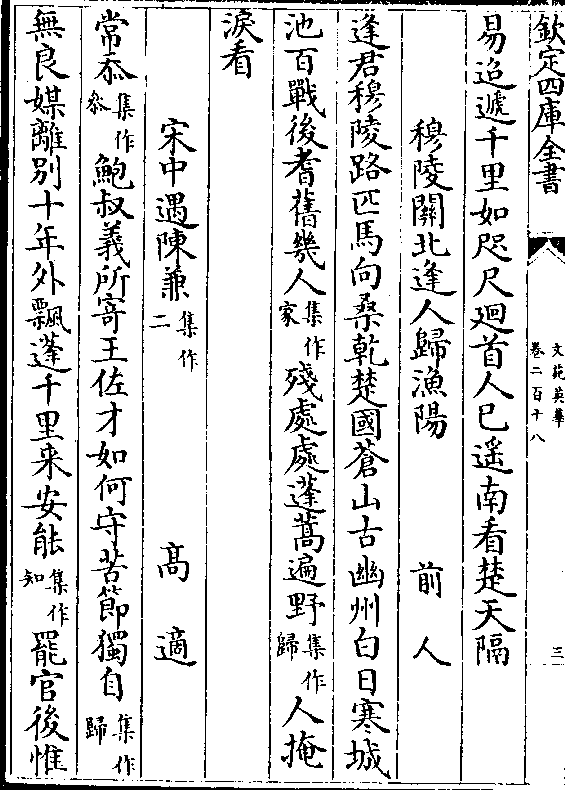 欽定四庫全書
文苑英華
卷二百十八
三
易迢遞千里如咫尺廻首人已遥南看楚天隔
穆陵關北逢人歸漁陽 前人
逢君穆陵路匹馬向桑乾楚國蒼山古幽州白日寒城
池百戰後耆舊幾人集作家殘處處蓬蒿遍野集作歸人掩
淚看
宋中遇陳兼集作二 高適
常忝集作參鮑叔義所寄王佐才如何守苦節獨自集作歸
無良媒離別十年外飄蓬千里来安能集作知罷官後惟